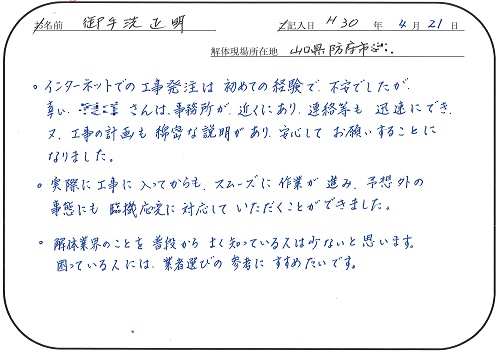 お名前 御手洗正明 ご記入日 H30年 4月 21日
解体現場所在地 山口県防府市
・インターネットでの工事発注は初めての経験で、不安でしたが、
幸い、さんは、事務所が、近くにあり、連絡等も迅速にでき、
又、工事の計画も綿密な説明があり、安心してお願いすることに
なりました。
・実際に工事に入ってからも、スムーズに作業が進み、予想外の
事態にも臨機応変に対応していただくことができました。
・解体業界のことを普段からよく知っている人は少ないと思います。
困っている人には、業者選びの参考にすすめたいです。